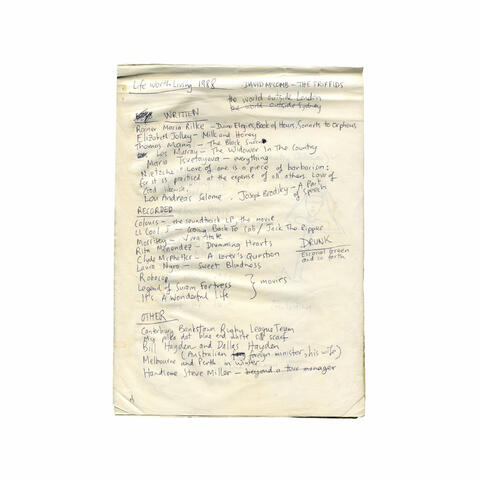 Life Worth Living 1988 DAVID McCOMB - THE TRIFFIDS
the world outside London
the world outside Sydney
WRITTEN
Rainer Maria Rilke - Duino Elegies, Book of Hours, Sonnets to Orpheus
Elizabeth Jolley - Milk and Honey
Thomas Mann - The Black Swan
Les Murray - The Widower In The Country
Maria Tsvetayeva - everything
Nietzche "Love of one is a piece of barbarism:
for it is practised at the expense of all others. Love of
God likewise."
Lou Andreas Salome, Joseph Brodsky - A Part
of Speech
RECORDED
Colours - the soundtrack LP, the movie
LL Cool J - Going Back To Cali / Jack The Ripper
Morrissey - Viva Hate
Rita Menendez - Drumming Hearts
Clyde McPhatter - A Lover's Question
Laura Nyro - Sweet Blindness
Robocop
Legend of Suram Fortress
It's A Wonderful Life
} movies
DRUNK
Esporal Green
and so forth
OTHER
Canterbury Bankstown Rugby League Team
My polka dot blue and white silk scarf
Bill Hayden and Dallas Hayden
(Australian foreign minister, his wife)
Melbourne and Perth in winter
Handsome Steve Miller - beyond a tour manager